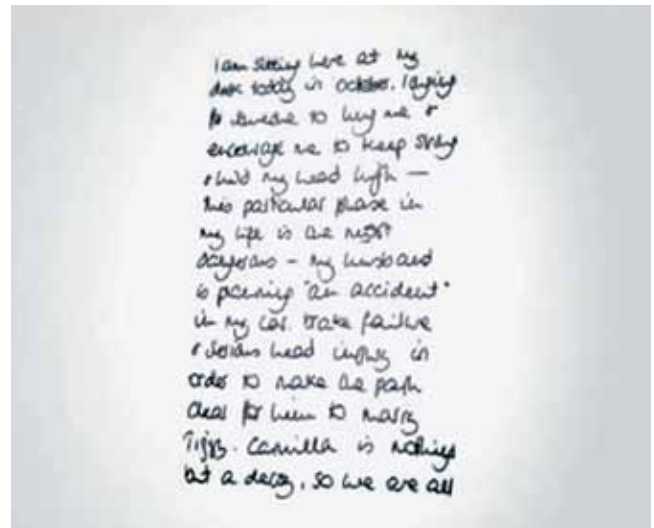 I am sitting here at my
desk today in October, longing
for someone to hug me &
encourage me to keep strong
& hold my head high —
this particular phase in
my life is the most
dangerous - my husband
is planning "an accident"
in my car. brake failure
& serious head injury in
order to make the path
clear for him to marry
Tiggy. Camilla is nothing
but a decoy, so we are all